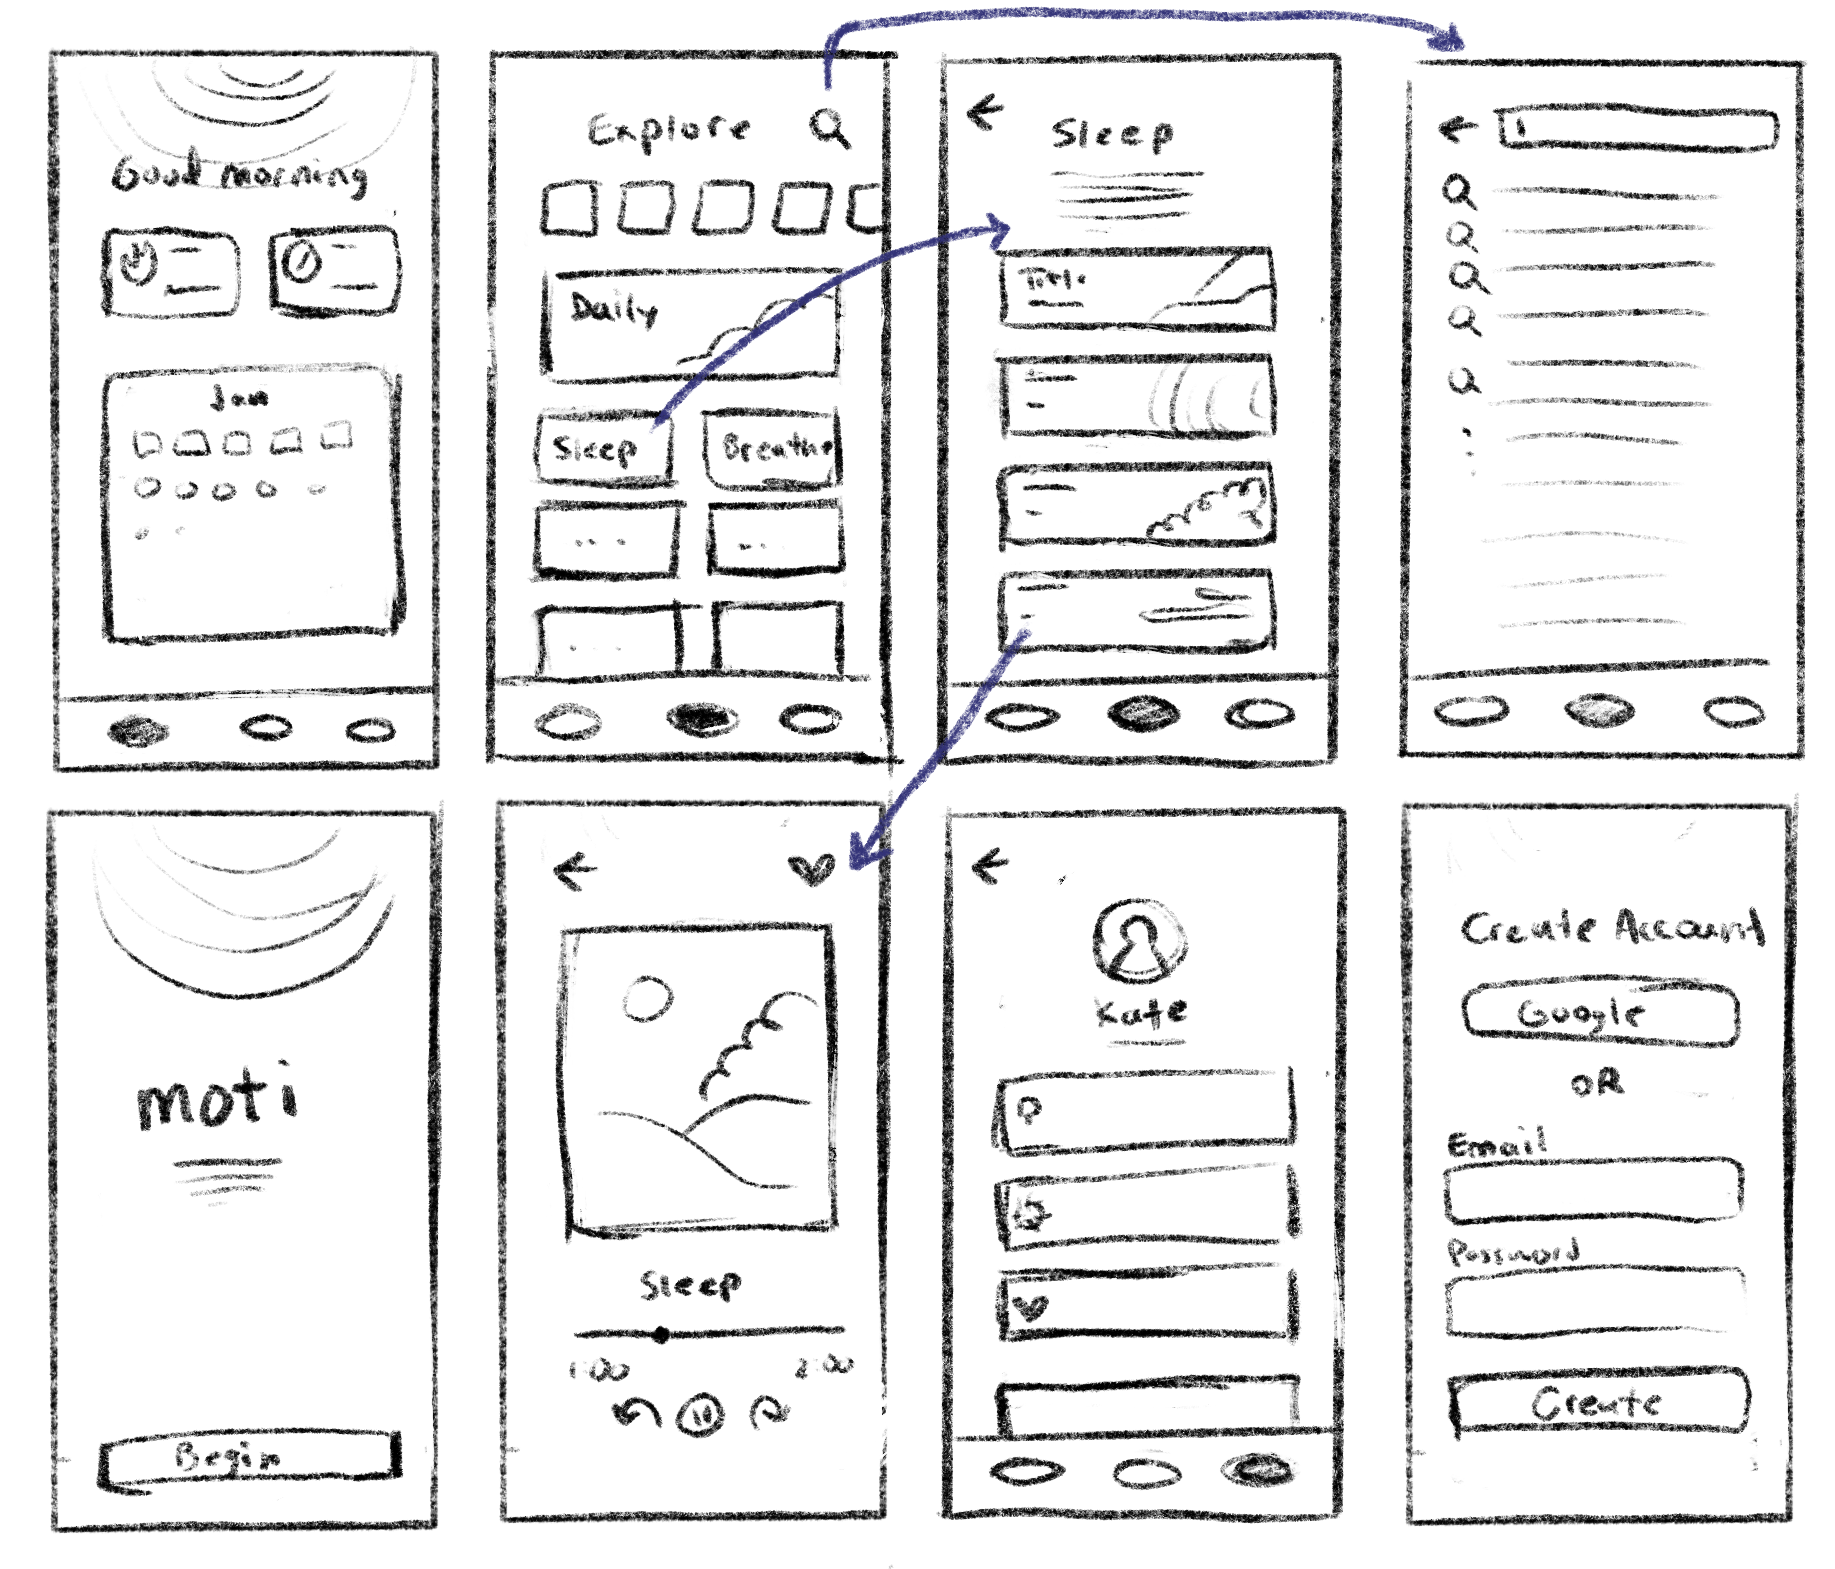 Good morning
Jan
Explore
Daily
Sleep
Breathe
Sleep
Title
moti
Begin
Sleep
1:00
2:00
10
Kate
Create Account
Google
OR
Email
Password
Create